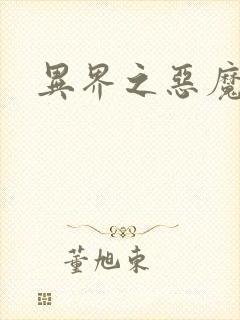 異界之惡魔
董旭東